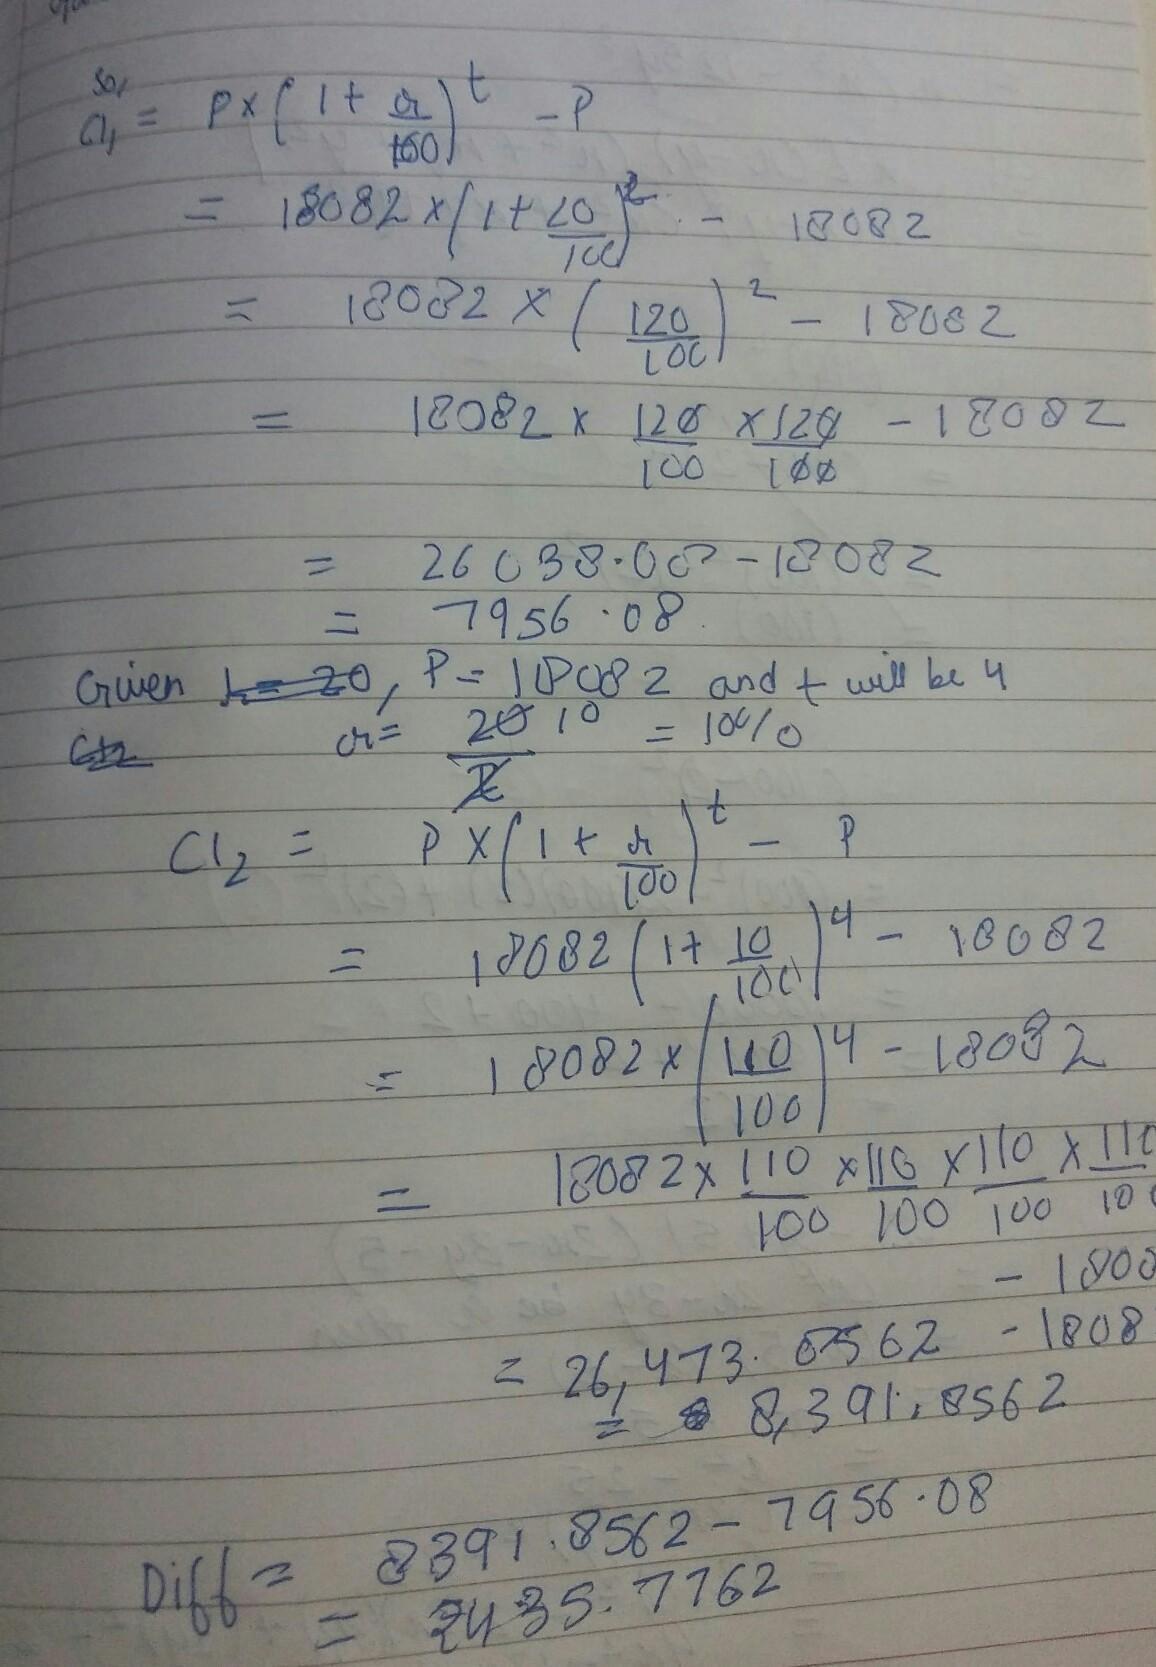 So,
CI₁ = P × (1 + r/100)^t - P
= 18082 × (1 + 20/100)^2 - 18082
= 18082 × (120/100)^2 - 18082
= 18082 × 120/100 × 120/100 - 18082
= 26038.08 - 18082
= 7956.08
Given , P = 18082 and t will be 4
r = 20/2 10 = 10%
CI₂ = P × (1 + r/100)^t - P
= 18082 (1 + 10/100)^4 - 18082
= 18082 × (110/100)^4 - 18082
= 18082 × 110/100 × 110/100 × 110/100 × 110/100
- 1808
= 26,473.8562 - 1808
= 8,391.8562
Diff = 8391.8562 - 7956.08
= 435.7762